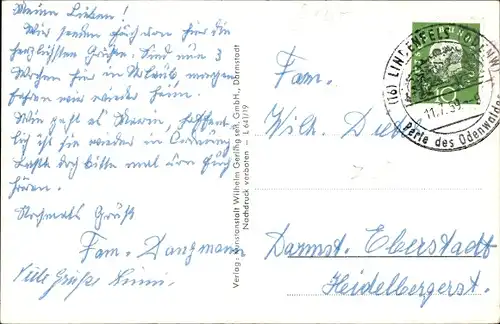 Meine Lieben!
Wir senden Euch von hier die
herzlichsten Grüße. Sind nun 3
Wochen hier in Urlaub morgen
fahren wir wieder heim.
Wie geht es Mama, hoffent-
lich ist sie wieder in Ordnung
Laßt doch bitte mal von Euch
hören.
Nochmals Grüße
Fam. Dangmann
Viele Grüße
Verlag: Kunstanstalt Wilhelm Gerling sen. GmbH., Darmstadt
Nachdruck verboten — L 641/19
(16) LINDENFELS ODENW.
11.7.59
Perle des Odenwaldes
10
Fam.
Wilh. Dieter
Darmst. Eberstadt
Heidelbergerst.